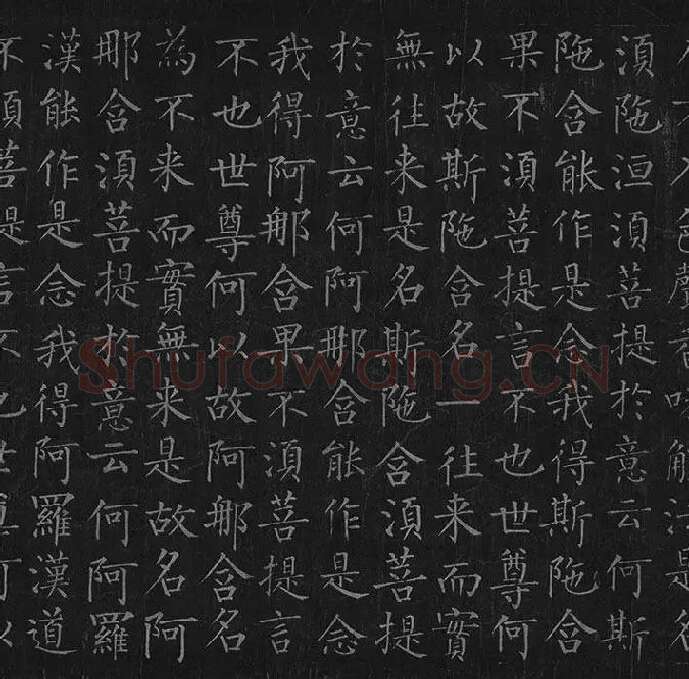 入不入色聲香味觸法是名
須陁洹須菩提於意云何斯
陁含能作是念我得斯陁含
果不須菩提言不也世尊何
以故斯陁含名一往来而實
無往来是名斯陁含須菩提
於意云何阿那含能作是念
我得阿那含果不須菩提言
不也世尊何以故阿那含名
為不来而實無来是故名阿
那含須菩提於意云何阿羅
漢能作是念我得阿羅漢道
不須菩提言不也世尊何以
Shufawang.CN